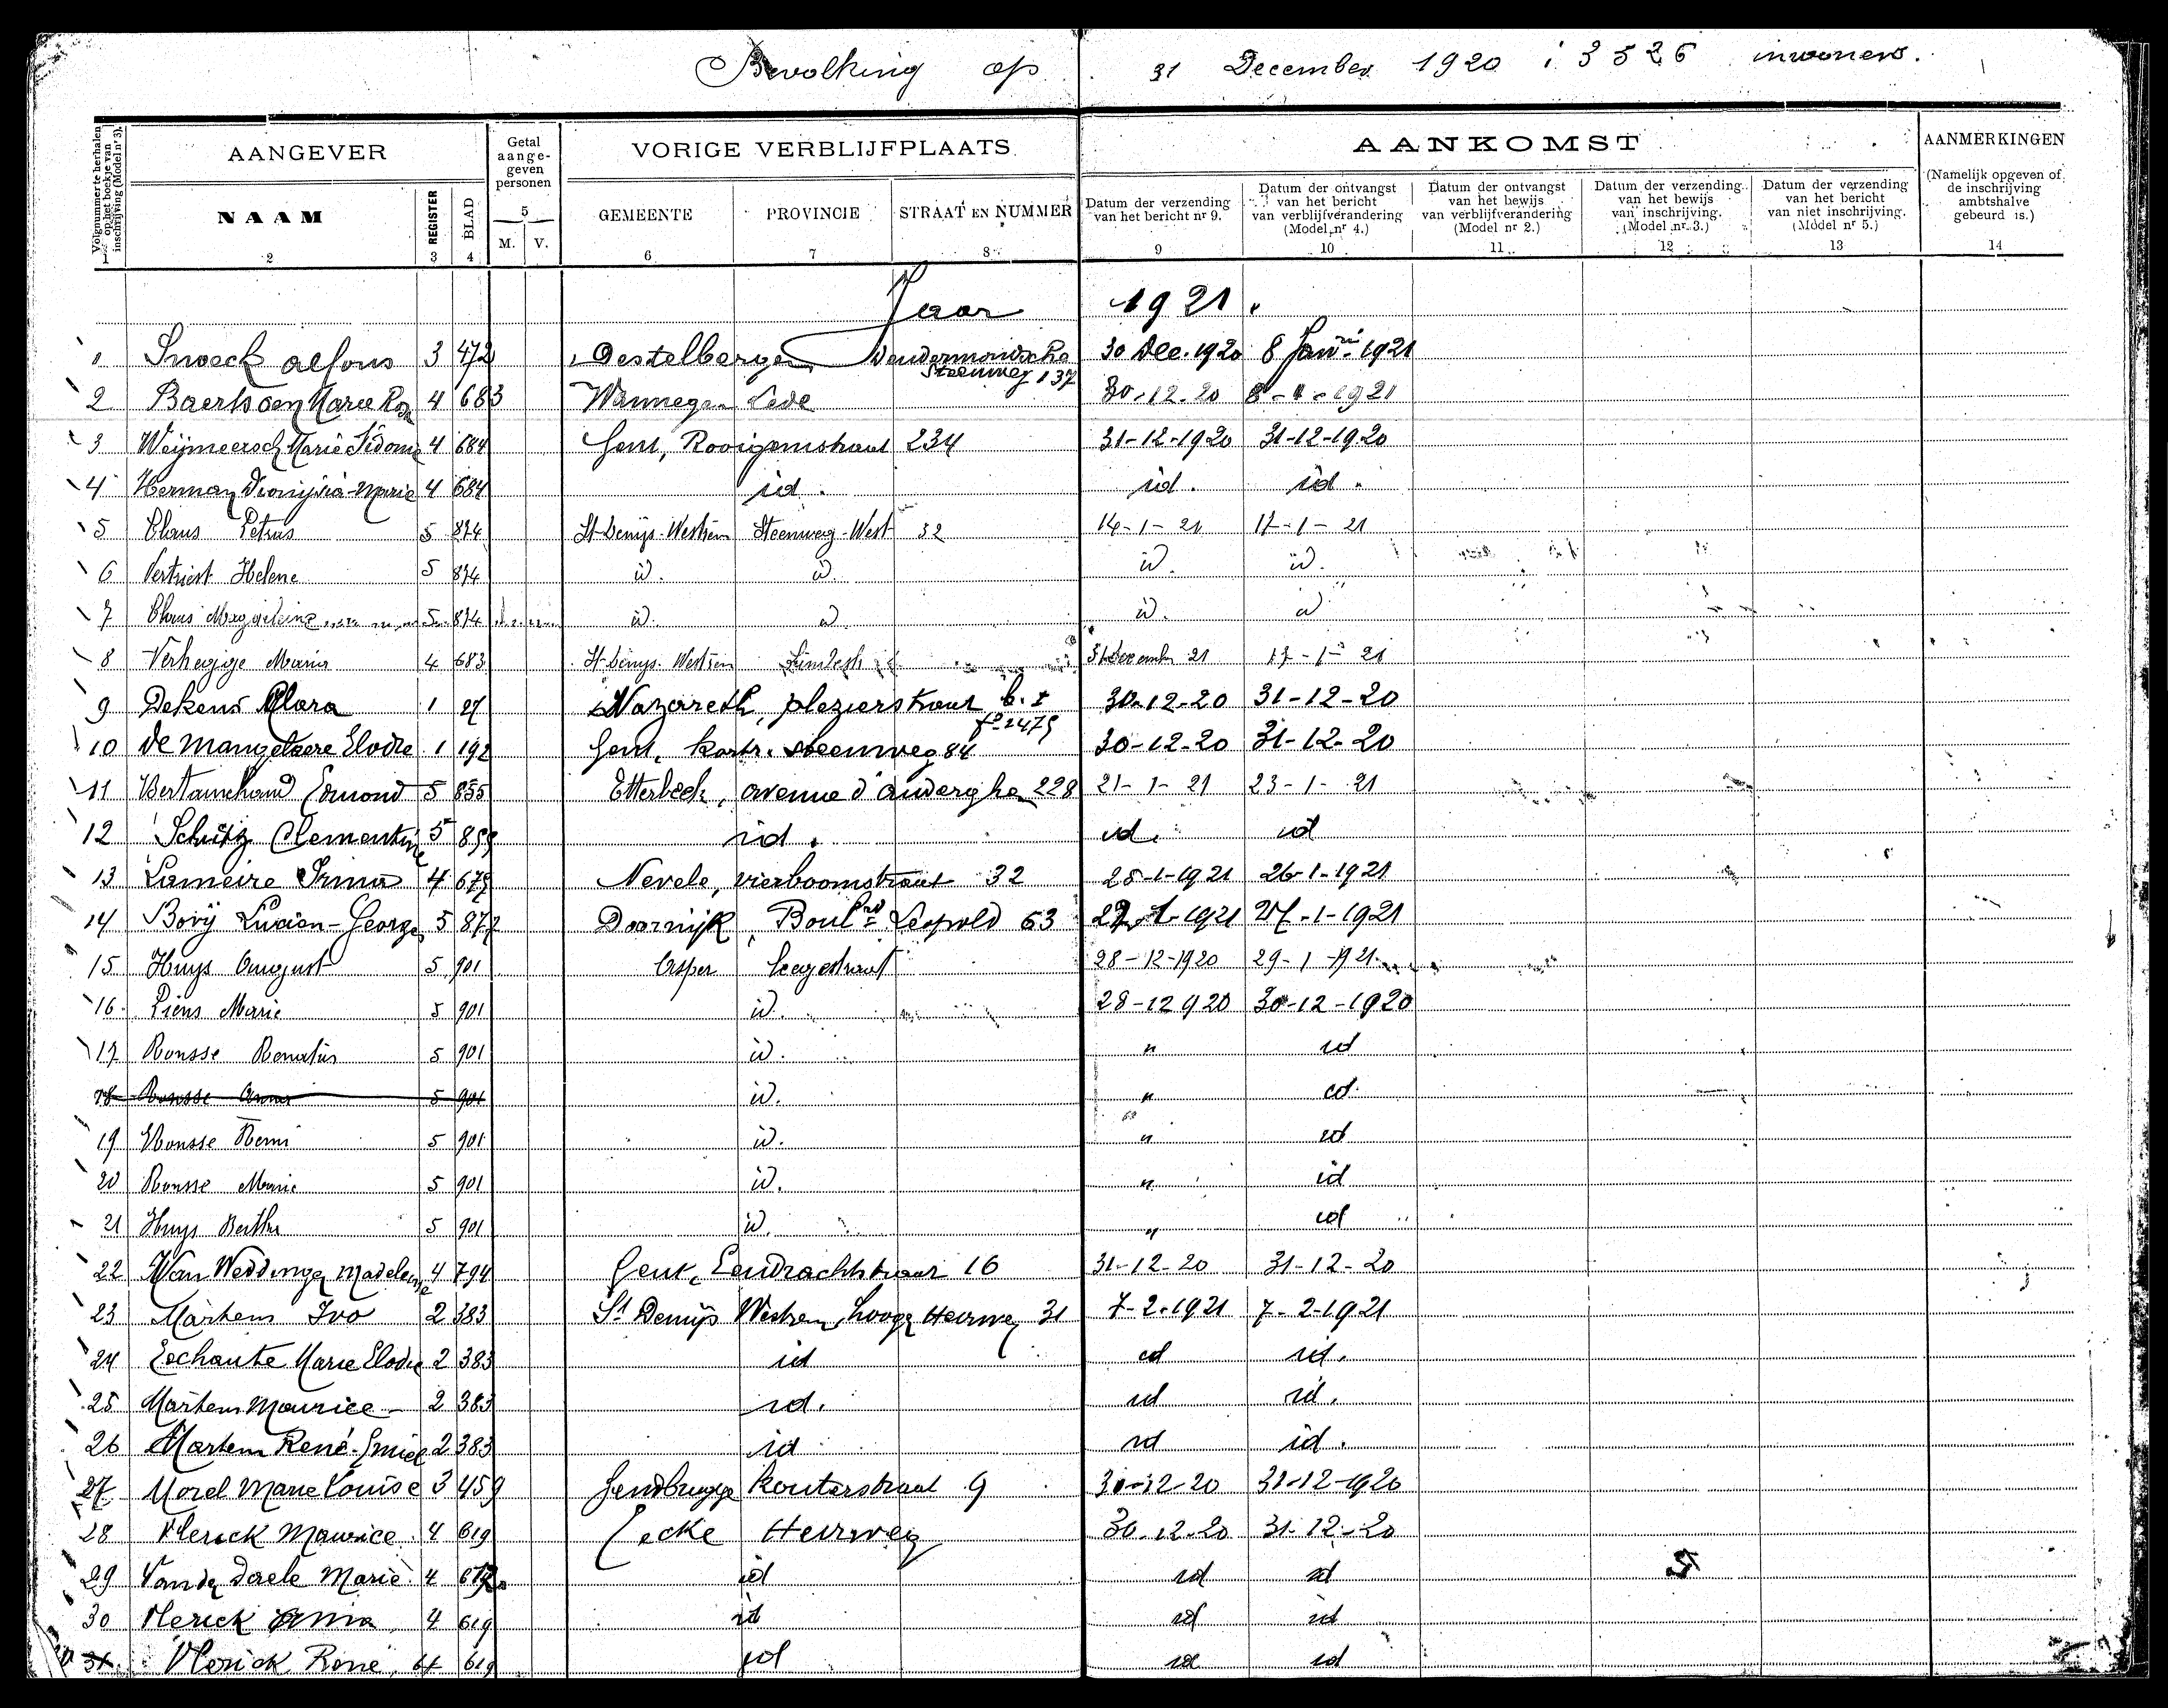 Bevolking op 31 December 1920 : 3526 inwoners.
Volgnummer te herhalen op het boekje van inschrijving (Model nr 3).
AANGEVER
Getal aange-geven personen
VORIGE VERBLIJFPLAATS
AANKOMST
AANMERKINGEN
NAAM REGISTER BLAD 5 M. V.
GEMEENTE PROVINCIE STRAAT EN NUMMER
Datum der verzending van het bericht nr 9.
Datum der ontvangst van het bericht van verblijfverandering (Model nr 4.)
Datum der ontvangst van het bewijs van verblijfverandering (Model nr 2.)
Datum der verzending van het bewijs van inschrijving. (Model nr 3.)
Datum der verzending van het bericht van niet inschrijving. (Model nr 5.)
(Namelijk opgeven of de inschrijving ambtshalve gebeurd is.)
1 2 3 4 6 7 8 9 10 11 12 13 14
Jaar 1921.
1 Snoeck Alfons 3 472 Destelbergen Dendermondsche Steenweg 137 30 Dec. 1920 8 Janri 1921
2 Marie 4 683 Wannegem Lede 30-12-20 1921
3 Weijmeersch Marie Sidonie 4 684 Gent, Rooigemstraat 234 31-12-1920 31-12-1920
4 Herman Marie 4 684 id. id. id.
5 Claus Petrus 5 874 St-Denijs-Westrem Steenweg-West 32 14-1-21 17-1-21
6 Vertriest Helene 5 874 id. id. id. id.
7 Claus 5 874 id. id. id. id
8 Verhegge Maria 4 683 St-Denijs-Westrem 17-1-21
9 Dekens Clara 1 27 Nazareth, plezierstraat b. I fo 1475 30-12-20 31-12-20
10 De Mangelaere Elodie 1 192 Gent, Kortr. steenweg 84 30-12-20 31-12-20
11 Edmond 5 855 Etterbeek, avenue d'auderghem 228 21-1-21 23-1-21
12 Schutz Clementine 5 855 id. id. id
13 Lameire Irma 4 675 Nevele, vierboomstraat 32 25-1-1921 26-1-1921
14 Bovij Lucien-George 5 877 Doornijk, Boulrd Leopold 63 27-1-1921 27-1-1921
15 Huys August 5 901 Asper Leegestraat 28-12-1920 29-1-1921
16 Piens Marie 5 901 id. 28-12 920 30-12-1920
17 Rousse Renatus 5 901 id. " id
18 Rousse Anna 5 901 id. " id.
19 Rousse Remi 5 901 id. " id
20 Rousse Marie 5 901 id. " id
21 Huys Bertha 5 901 id. " id
22 Van Weddinge Madeleine 4 794 Gent, Eendrachtstraat 16 31-12-20 31-12-20
23 Martens Ivo 2 383 St Denijs Westrem, hooge Heerweg 31 7-2-1921 7-2-1921
24 Marie Elodie 2 383 id id id.
25 Martens Maurice 2 383 id. id id.
26 Martens René-Emiel 2 383 id id id.
27 Morel Marie Louise 3 459 Gendbrugge Kouterstraat 9 30-12-20 31-12-1920
28 Vlerick Maurice 4 619 Eecke Heirweg 30-12-20 31-12-20
29 Vanden Daele Marie 4 619 id id id
30 Vlerick 4 619 id id id
31 Vlerick René 4 619 id id id